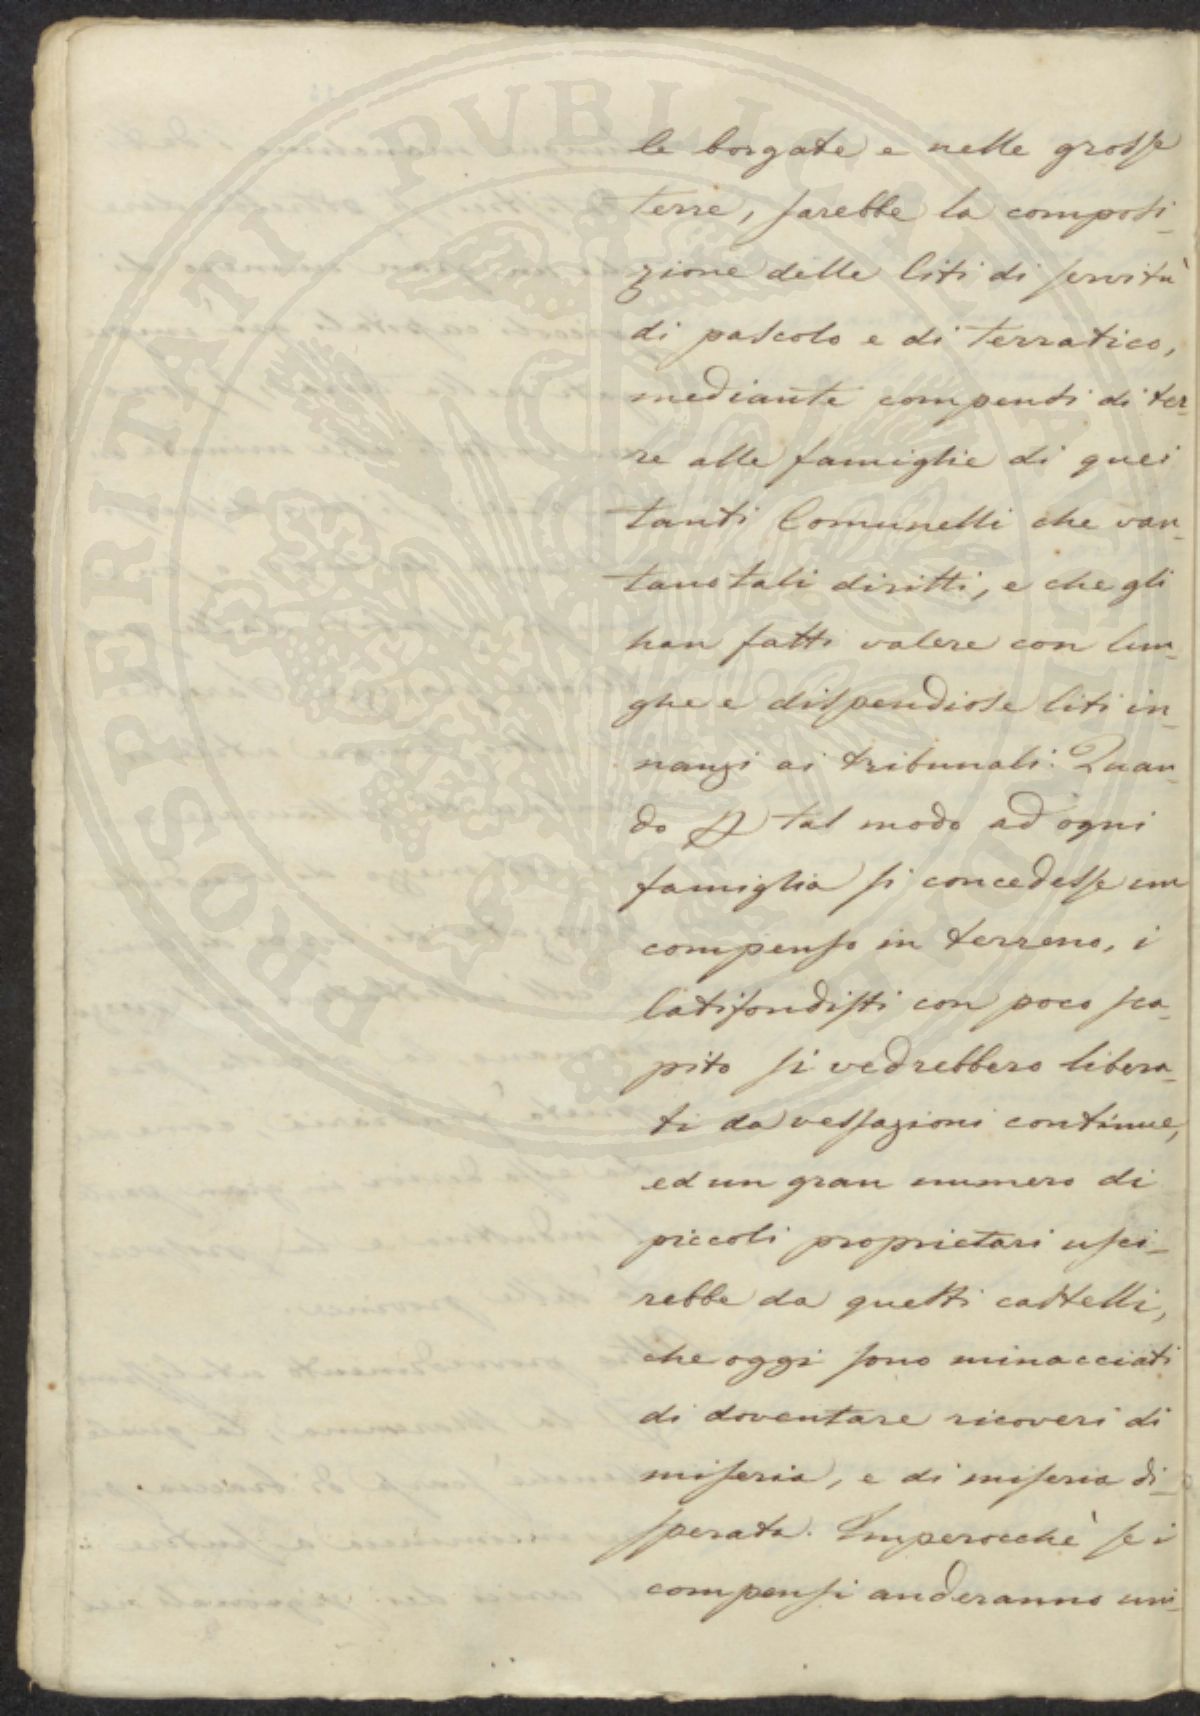 le borgate e nelle grosse
terre, sarebbe la composi-
zione delle liti di servitù
di pascolo e di terratico,
mediante compensi di ter-
re alle famiglie di quei
tanti Comunelli che van-
tano tali diritti, e che gli
han fatti valere con lun-
ghe e dispendiose liti in-
nanzi ai tribunali. Quan-
do tal modo ad ogni
famiglia si concedesse un
compenso in terreno, i
latifondisti con poco sca-
pito si vedrebbero libera-
ti da vessazioni continue,
ed un gran numero di
piccoli proprietari usci-
rebbe da questi castelli,
che oggi sono minacciati
di doventare ricoveri di
miseria, e di miseria di-
sperata. Imperocchè se i
compensi anderanno uni-
PROSPERITATI PUBLICAE AUGENDAE